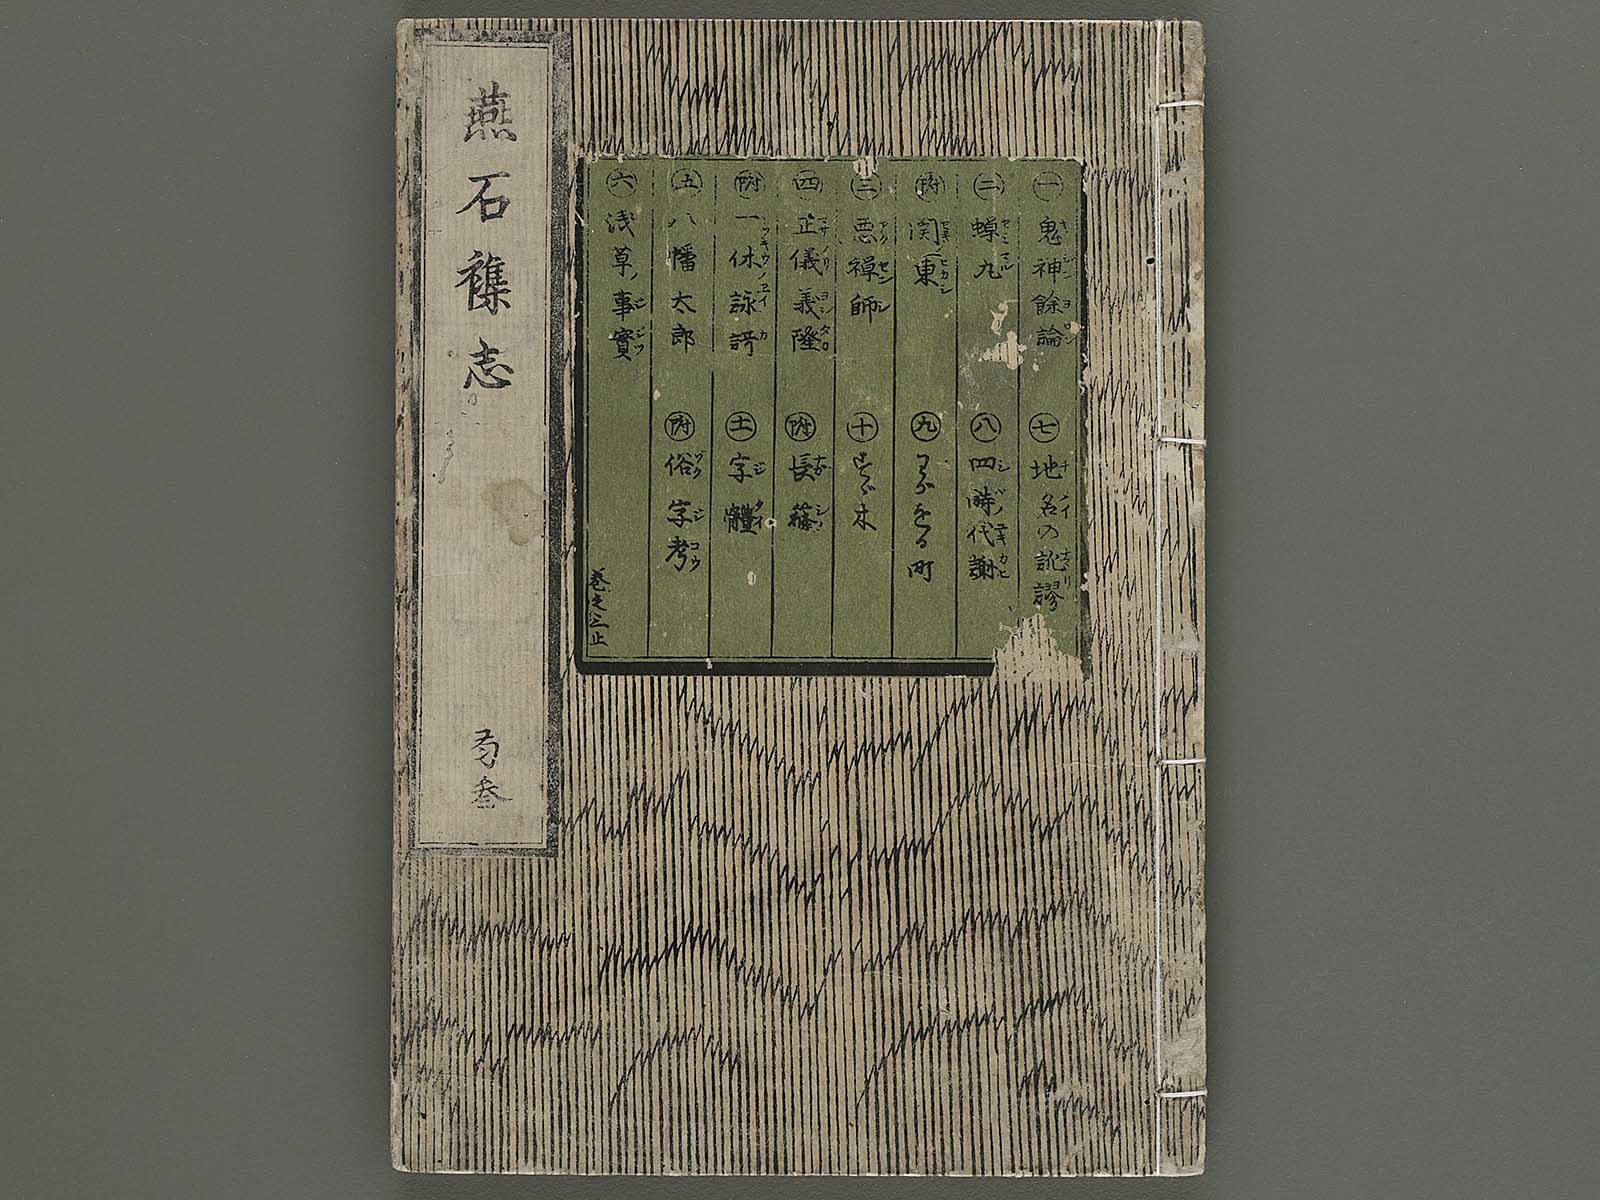 燕石襍志
卷叄
㊀鬼神餘論
㊁蝉丸
㊙附 関東
㊂悪禅師
㊃正儀義隆
附 一休詠謌
㊄八幡太郎
㊅浅草ノ事實
㊆地名の訛謬
㊇四時代謝
㊈町
㊉すゞ木
附 長篠
十一 字體
附 俗字考
巻之三止